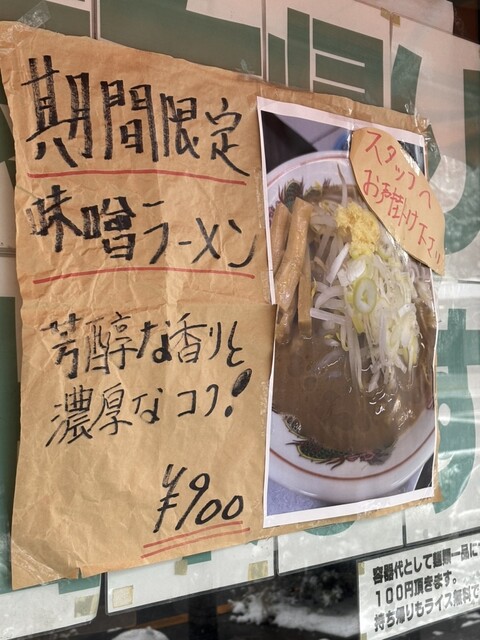 期間限定
味噌ラーメン
芳醇な香りと
濃厚なコク!
¥900
スタッフへ
お声掛け下さい
容器代として麺類一品に
100円頂きます。
持ち帰りもライス無料で